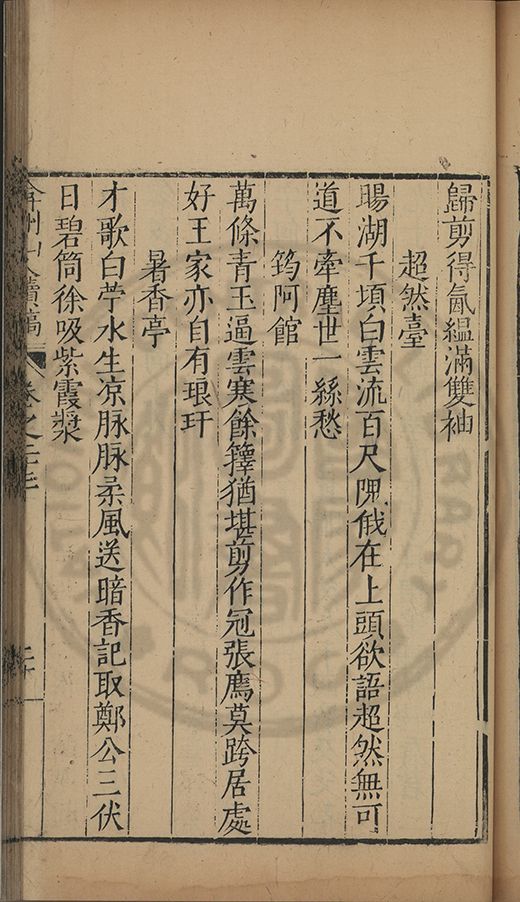 歸剪得氤緼滿雙袖
超然臺
暘湖千頃白雲流百尺隄俄在上頭欲語超然無可
道不牽塵世一絲愁
筠阿館
萬條青玉逼雲寒餘籜猶堪剪作冠張廌莫跨居處
好王家亦自有琅玕
暑香亭
才歌白苧水生凉脉脉柔風送暗香記取鄭公三伏
日碧筒徐吸紫霞漿
弇州山人續稿 卷之二十三